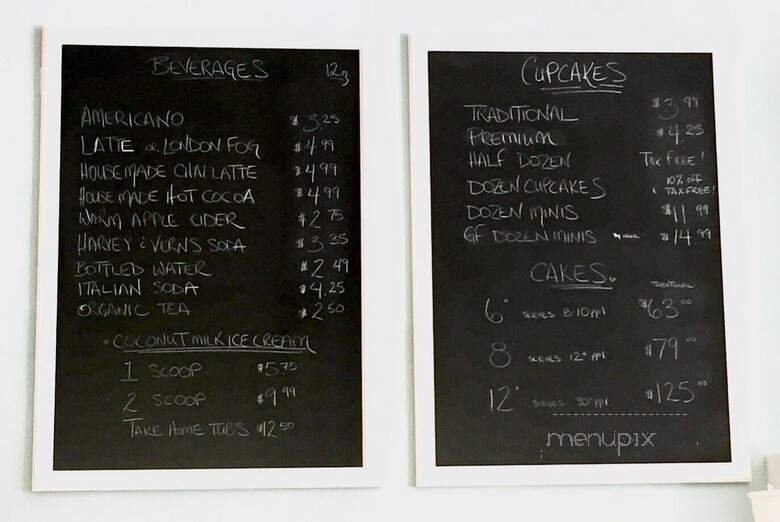 BEVERAGES
AMERICANO $3.25
LATTE or LONDON FOG $4.99
HOUSEMADE CHAI LATTE $4.99
HOUSEMADE HOT COCOA $4.99
WARM APPLE CIDER $2.75
HARVEY & VERNS SODA $3.35
BOTTLED WATER $2.49
ITALIAN SODA $4.25
ORGANIC TEA $2.50
COCONUT MILK ICE CREAM
1 SCOOP $5.75
2 SCOOP $9.99
TAKE HOME TUBS $12.50
CUPCAKES
TRADITIONAL $3.99
PREMIUM $4.25
HALF DOZEN TAX FREE!
DOZEN CUPCAKES 10% off & TAX FREE!
DOZEN MINIS $11.99
GF DOZEN MINIS $14.99
CAKES
TRADITIONAL
6" SERVES 8-10 ppl $63.00
8 SERVES 12+ ppl $79.00
12" SERVES ppl $125.00
menupix